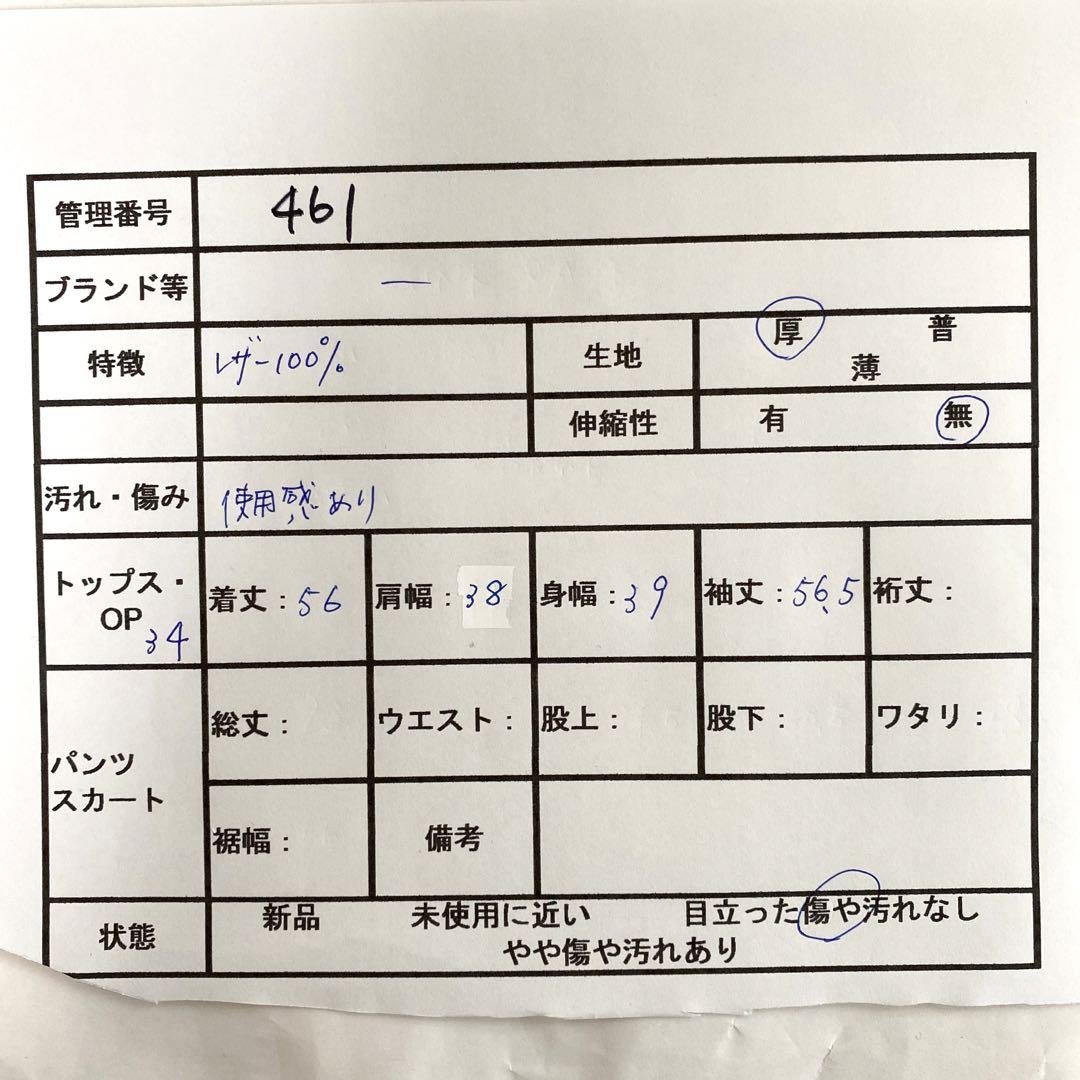 管理番号 461
ブランド等 ー
特徴 レザー100% 生地 厚 普
薄
伸縮性 有 無
汚れ・傷み 使用感あり
トップス・
OP 34 着丈：56 肩幅：38 身幅：39 袖丈：56.5 裄丈：
総丈： ウエスト： 股上： 股下： ワタリ：
パンツ
スカート
裾幅： 備考
状態 新品 未使用に近い 目立った傷や汚れなし
やや傷や汚れあり